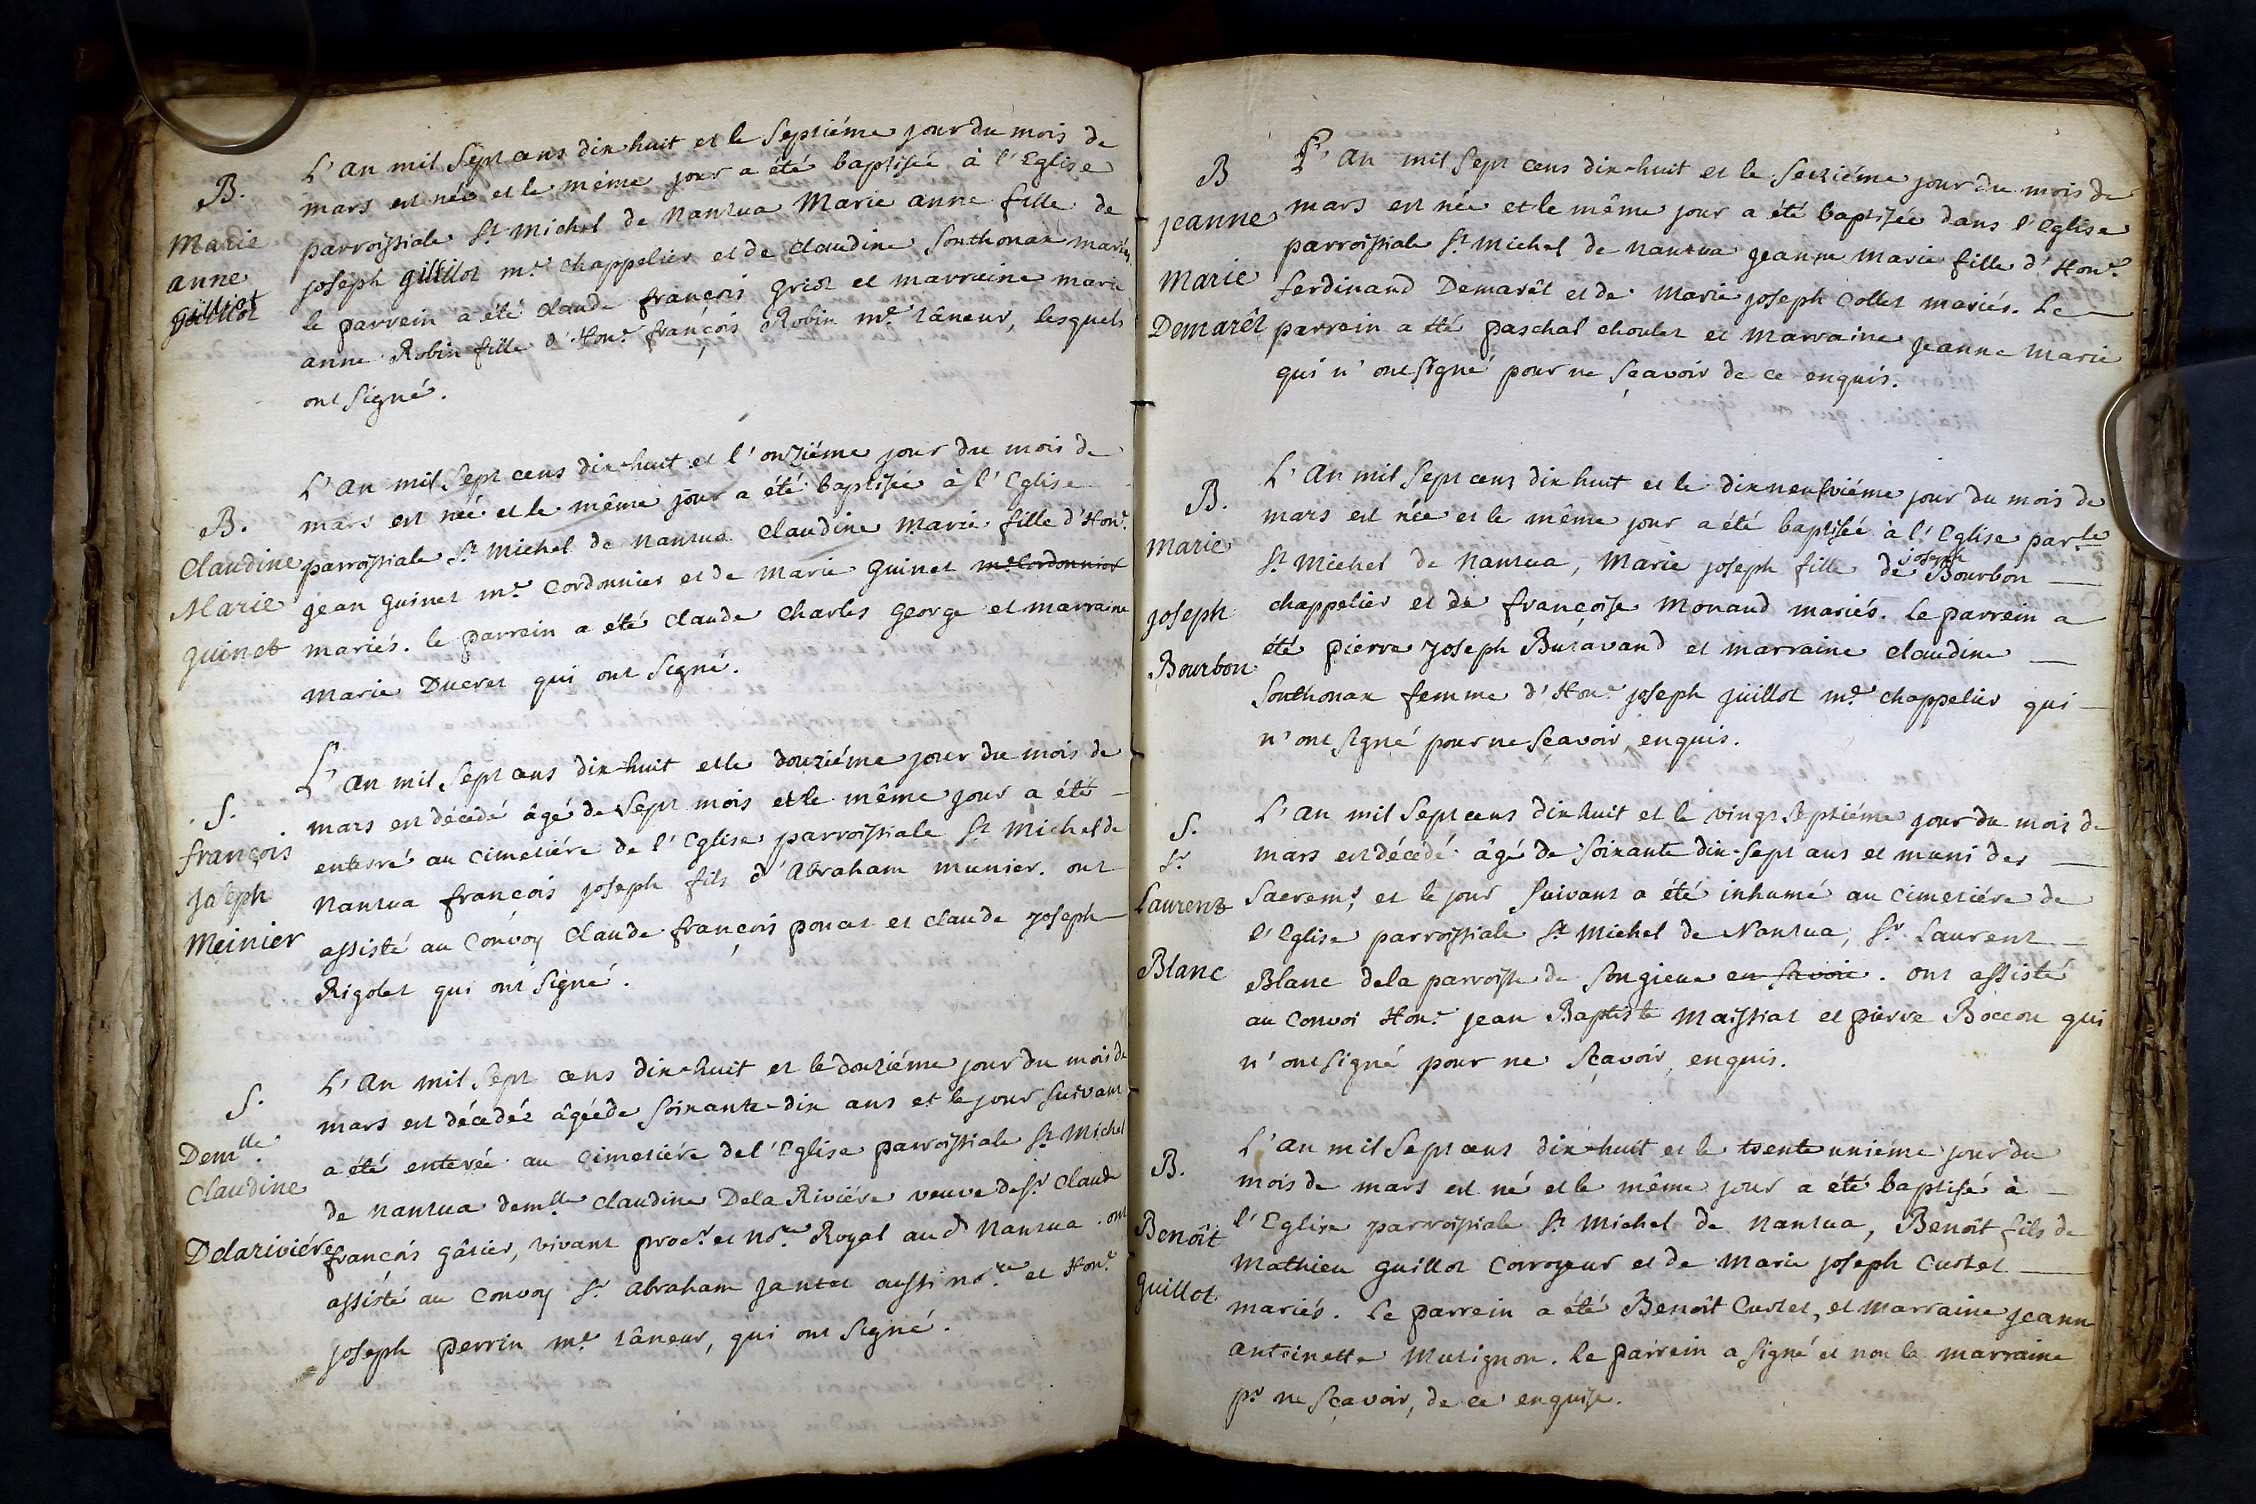 B.
Marie
anne
guilliot
L'an mil sept cens dix huit et le septiéme jour du mois de
mars est née et le méme jour a été baptisée à l'Eglise
parroissiale St Michel de Nantua Marie anne fille de
joseph guilliot me. chappelier et de claudine Sonthonax mariés
le parrein a été claude françois griot et marraine marie
anne Robin fille d'Hone. françois Robin me. tâneur, lesquels
ont signé.
B.
Claudine
Marie
guinet
L'an mil sept cens dix-huit et l'onziéme jour du mois de
mars est née et le même jour a été baptisée à l'Eglise
parroissiale St. Michel de Nantua Claudine Marie fille d'Hone.
jean guinet me. cordonnier et de marie guinet me cordonnier
mariés. le parrein a été claude charles george et marraine
marie Ducret qui ont signé.
S.
françois
joseph
Meinier
L'an mil sept cens dix-huit et le douziéme jour du mois de
mars est décédé âgé de sept mois et le même jour a été
enterré au cimetiére de l'Eglise parroissiale St Michel de
Nantua françois joseph fils d'Abraham munier. ont
assisté au convoy claude françois poncet et claude joseph
Rigolet qui ont signé.
S.
Demlle.
Claudine
Delariviére
L'an mil sept cens dix-huit et le douziéme jour du mois de
mars est décédée âgée de soixante-dix ans et le jour suivant
a été enterée au cimetiére de l'Eglise parroissiale St Michel
de Nantua demlle claudine Dela Riviére veuve de sr claude
françois gâtier, vivant procr. et nore. Royal aud Nantua. ont
assisté au convoy Sr. abraham jantet aussi nore et Hone.
joseph perrin me. tâneur, qui ont signé.
B
jeanne
Marie
Demarêt
L'an mil sept cens dix-huit et le seiziéme jour du mois de
mars est née et le même jour a été baptisée dans l'Eglise
parroissiale St Michel de Nantua jeanne Marie fille d'Hone.
ferdinand Demarêt et de Marie joseph Collet mariés. Le
parrein a été paschal choulet et Marraine jeanne Marie
qui n'ont signé pour ne sçavoir de ce enquis.
B.
Marie
joseph
Bourbon
L'an mil sept cens dix huit et le dixneufviéme jour du mois de
mars est née et le même jour a été baptisée à l'Eglise parle
St Michel de Nantua, Marie joseph fille de joseph Bourbon
chappelier et de françoise Monaud mariés. le parrein a
été pierre joseph Butavand et marraine claudine
Sonthonax femme d'Hone joseph guillot me. chappelier qui
n'ont signé pour ne sçavoir, enquis.
S.
Sr.
Laurent
Blanc
L'an mil sept cens dix huit et le vingt septiéme jour du mois de
mars est décédé âgé de soixante dix-sept ans et muni des
sacremts et le jour suivant a été inhumé au cimetiére de
l'Eglise parroissiale St Michel de Nantua, Sr. Laurent
Blanc dela parroisse de Songieue en savoie. ont assisté
au convoi Hone. jean Baptiste Maissiat et pierre Boccon qui
n'ont signé pour ne sçavoir, enquis.
B.
Benoît
guillot
L'an mil sept cens dix-huit et le trente uniéme jour du
mois de mars est né et le même jour a été baptisé à
l'Eglise parroissiale St. Michel de Nantua, Benoît fils de
Mathieu guillot conroyeur et de Marie joseph Curtet
mariés. Le parrein a été Benoît Curtet, et marraine jeanne
antoinette Mutignon. le parrein a signé et non la marraine
pr ne sçavoir, de ce enquise.